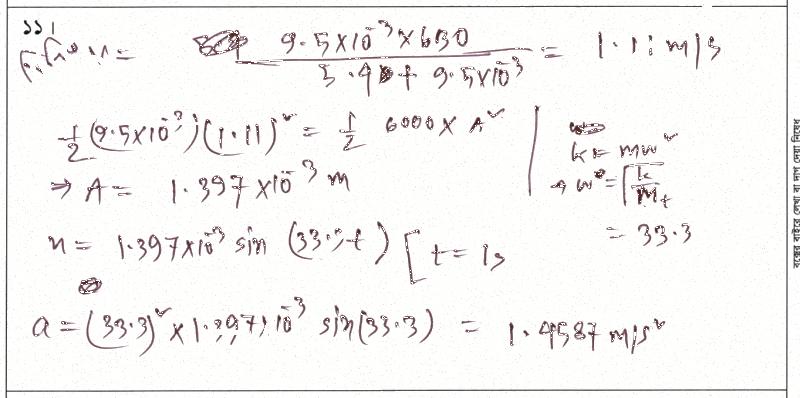 ১১।
= 9.5×10⁻³×630 / 5.4 + 9.5×10⁻³ = 1.11 m/s
1/2 (9.5×10⁻³)(1.11)² = 1/2 6000 × A²
⇒ A = 1.397 ×10⁻³ m
k = mω²
→ ω = √k/m_t
= 33.3
x = 1.397×10⁻³ sin (33.3t) [t = 1s
a = (33.3)² × 1.397×10⁻³ sin(33.3) = 1.4587 m/s²
বক্সের বাইরে লেখা বা দাগ দেয়া নিষেধ